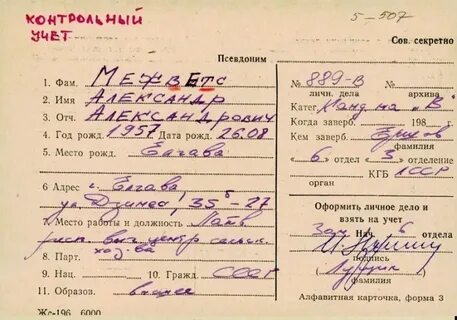 КОНТРОЛЬНЫЙ
УЧЕТ
5-507
Сов. секретно
Псевдоним
№ 889-В
личн. дела архива
Катег. Канд на "В"
Когда заверб. 198
Кем заверб. Ершов
фамилия
6 отдел 3 отделение
КГБ ЛССР
орган
Оформить личное дело и
взять на учет
Зам Нач. 6 отдела
подпись
(фамилия)
Алфавитная карточка, форма 3
1. Фам. МЕЖВЕТС
2. Имя АЛЕКСАНДР
3. Отч. АЛЕКСАНДРОВИЧ
4. Год рожд. 1957 Дата рожд. 26.08
5. Место рожд. Елгава
6 Адрес г. Елгава,
ул. 35 27
7. Место работы и должность Латв
выч центр сельск.
хоз-ва
8. Парт.
9. Нац. 10. Гражд. СССР
11. Образов. высшее
Жс-196 6000